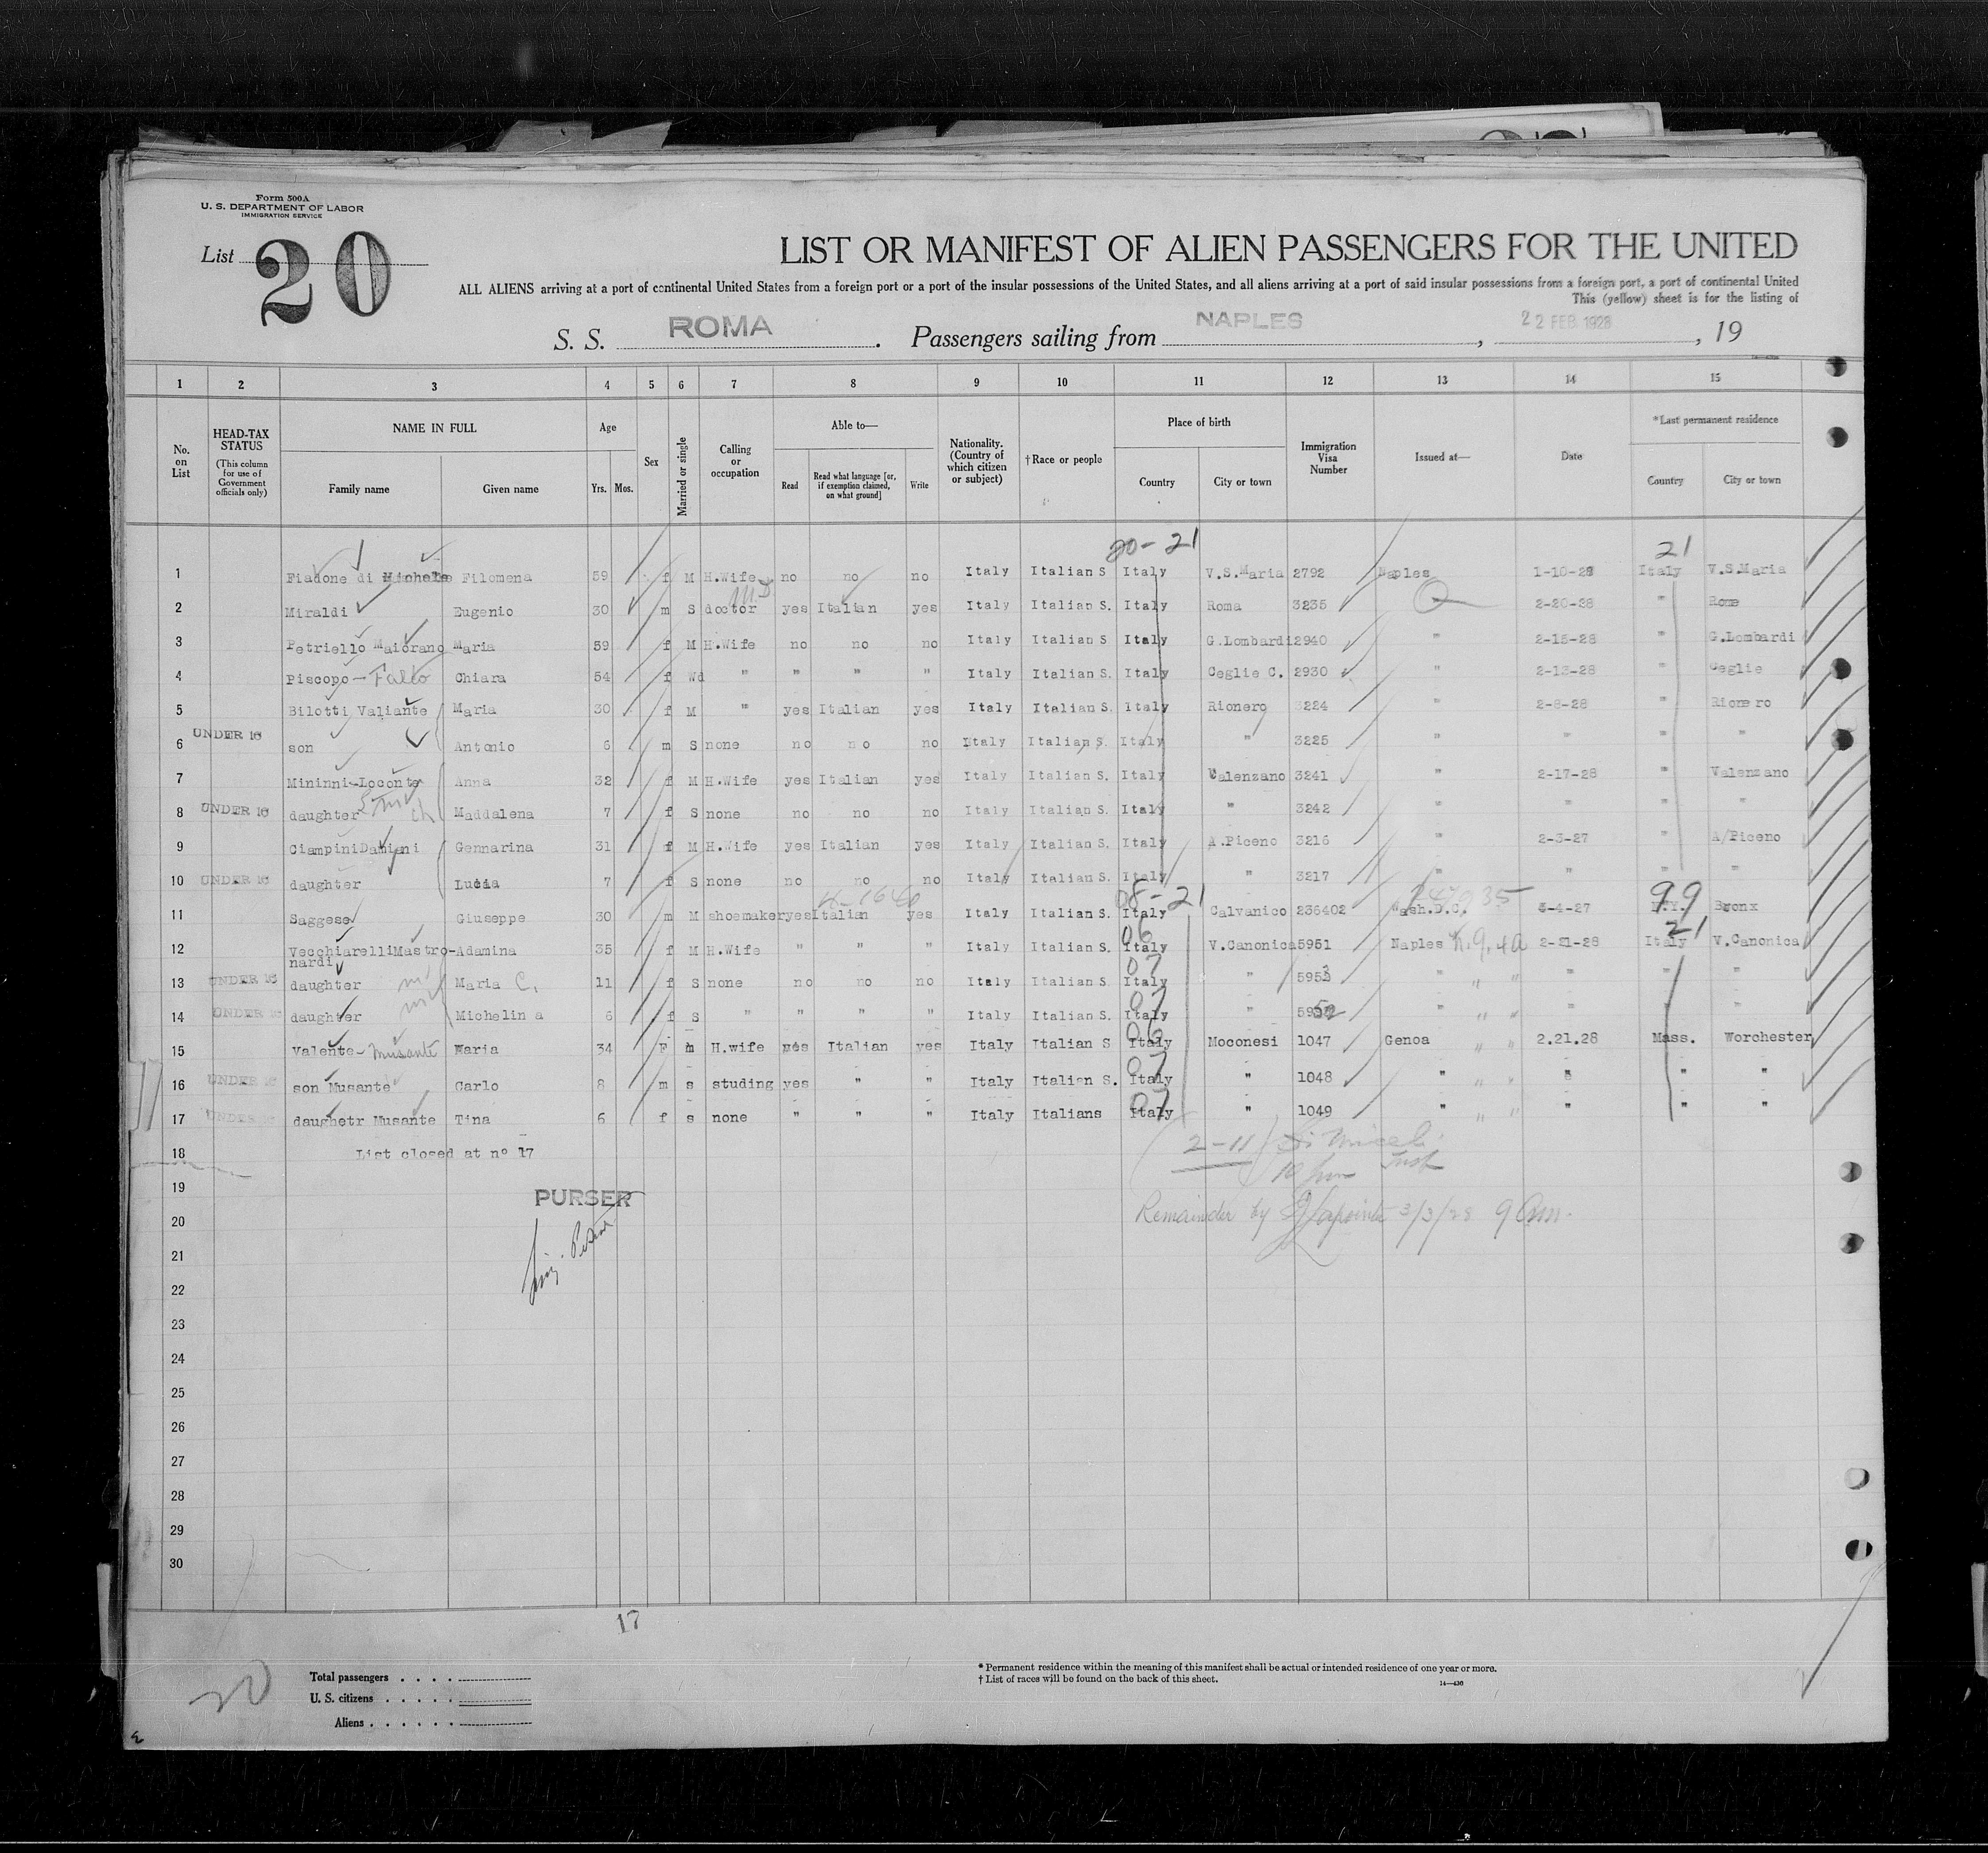 Form 500A
U. S. DEPARTMENT OF LABOR
IMMIGRATION SERVICE
List 20
LIST OR MANIFEST OF ALIEN PASSENGERS FOR THE UNITED
ALL ALIENS arriving at a port of continental United States from a foreign port or a port of the insular possessions of the United States, and all aliens arriving at a port of said insular possessions from a foreign port, a port of continental United
This (yellow) sheet is for the listing of
S. S. ROMA. Passengers sailing from NAPLES, 22 FEB. 1928, 19
1 2 3 4 5 6 7 8 9 10 11 12 13 14 15
No. on List
HEAD-TAX STATUS (This column for use of Government officials only)
NAME IN FULL
Family name Given name
Age
Yrs. Mos.
Sex
Married or single
Calling or occupation
Able to—
Read
Read what language [or, if exemption claimed, on what ground]
Write
Nationality. (Country of which citizen or subject)
†Race or people
Place of birth
Country City or town
Immigration Visa Number
Issued at—
Date
*Last permanent residence
Country City or town
20-21 21
1 Fiadone di Michele Filomena 59 f M H.Wife no no no Italy Italian S Italy V.S.Maria 2792 Naples 1-10-28 Italy V.S.Maria
M.D
2 Miraldi Eugenio 30 m S doctor yes Italian yes Italy Italian S. Italy Roma 3235 " 2-20-28 " Rome
3 Petriello Maiorano Maria 59 f M H.Wife no no no Italy Italian S. Italy G.Lombardi 2940 " 2-15-28 " G.Lombardi
4 Piscopo - Falco Chiara 54 f Wd " " " " Italy Italian S. Italy Ceglie C. 2930 " 2-13-28 " Ceglie
5 Bilotti Valiante Maria 30 f M " yes Italian yes Italy Italian S. Italy Rionero 3224 " 2-8-28 " Rionero
6 UNDER 16 son Antonio 6 m S none no no no Italy Italian S. Italy " 3225 " " " "
7 Mininni-Loconte Anna 32 f M H.Wife yes Italian yes Italy Italian S. Italy Valenzano 3241 " 2-17-28 " Valenzano
8 UNDER 16 daughter Maddalena 7 f S none no no no Italy Italian S. Italy " 3242 " " " "
9 Ciampini Damiani Gennarina 31 f M H.Wife yes Italian yes Italy Italian S. Italy A.Piceno 3216 " 2-3-27 " A/Piceno
10 UNDER 16 daughter Lucia 7 f S none no no no Italy Italian S. Italy " 3217 " " " "
08-21 99
11 Saggese Giuseppe 30 m M shoemaker yes Italian yes Italy Italian S. Italy Calvanico 236402 Wash.D.C. 5-4-27 N.Y. Bronx
06 21
12 Vecchiarelli Mastro- Adamina 35 f M H.Wife " " " Italy Italian S. Italy V.Canonica 5951 Naples 2-21-28 Italy V.Canonica
nardi
07
13 UNDER 16 daughter Maria C. 11 f S none no no no Italy Italian S. Italy " 5953 " " " "
07
14 UNDER 16 daughter Michelina 6 f S " " " " Italy Italian S. Italy " 5952 " " " "
06
15 Valente - Musante Maria 34 F m H.wife yes Italian yes Italy Italian S Italy Moconesi 1047 Genoa " " 2.21.28 Mass. Worchester
07
16 UNDER 16 son Musante Carlo 8 m s studing yes " " Italy Italian S. Italy " 1048 " " " "
07
17 UNDER 16 daughetr Musante Tina 6 f s none " " " Italy Italians Italy " 1049 " " " "
18 List closed at n° 17
2-11
19 PURSER
Remainder by 3/3/28 9 am.
20
21
22
23
24
25
26
27
28
29
30
17
20
Total passengers
U. S. citizens
Aliens
* Permanent residence within the meaning of this manifest shall be actual or intended residence of one year or more.
† List of races will be found on the back of this sheet.
14—430